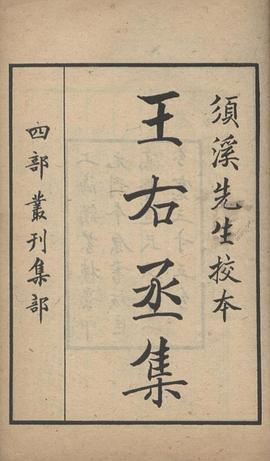 須溪先生校本
王右丞集
四部叢刊集部